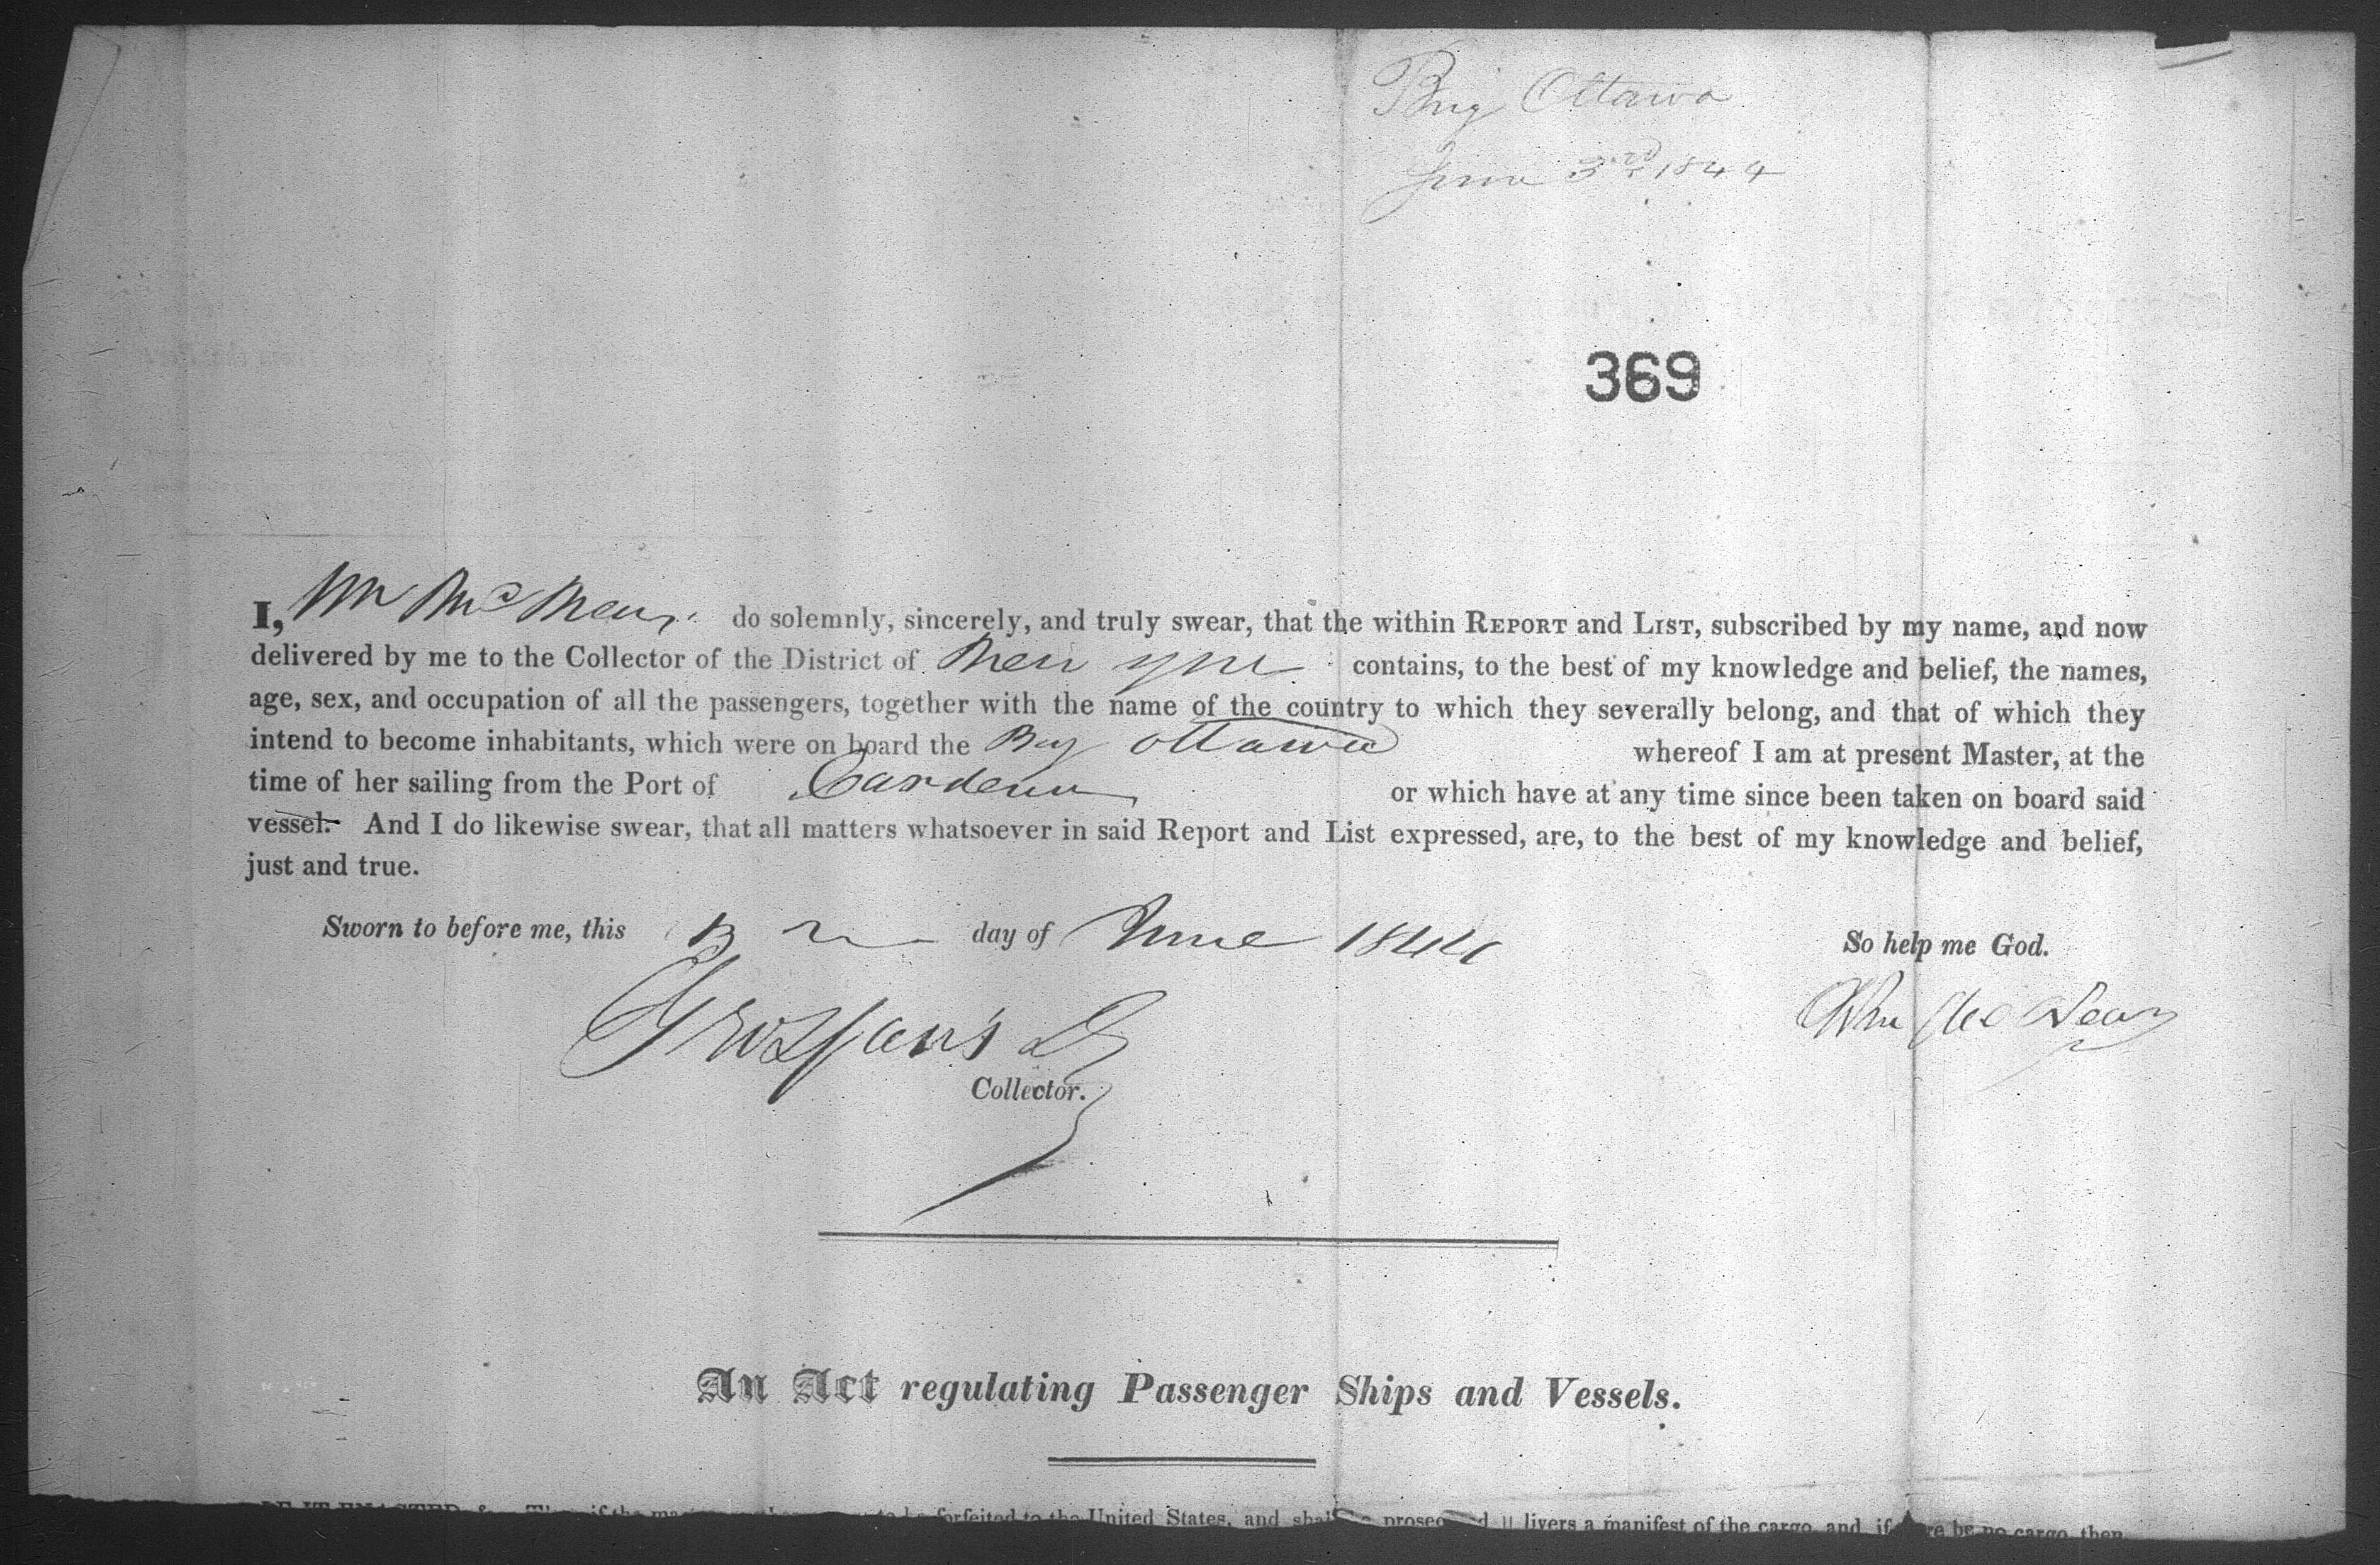 Brig Ottawa
June 3rd 1844
369
I, Wm Mc do solemnly, sincerely, and truly swear, that the within REPORT and LIST, subscribed by my name, and now
delivered by me to the Collector of the District of New York contains, to the best of my knowledge and belief, the names,
age, sex, and occupation of all the passengers, together with the name of the country to which they severally belong, and that of which they
intend to become inhabitants, which were on board the Brig Ottawa whereof I am at present Master, at the
time of her sailing from the Port of Cardenas or which have at any time since been taken on board said
vessel. And I do likewise swear, that all matters whatsoever in said Report and List expressed, are, to the best of my knowledge and belief,
just and true.
Sworn to before me, this 3 day of June 1844
So help me God.
Wm Mc
Collector.
An Act regulating Passenger Ships and Vessels.
BE IT ENACTED, if the forfeited to the United States, and livers a manifest of the cargo, and if be no cargo, then